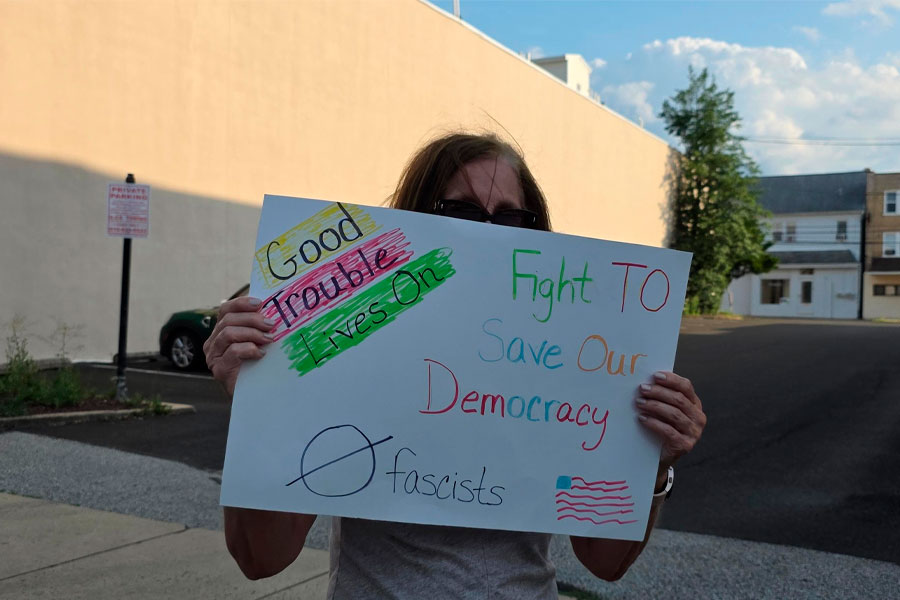 Good
Trouble
Lives On
Fight TO
Save Our
Democracy
fascists
PRIVATE
PARKING